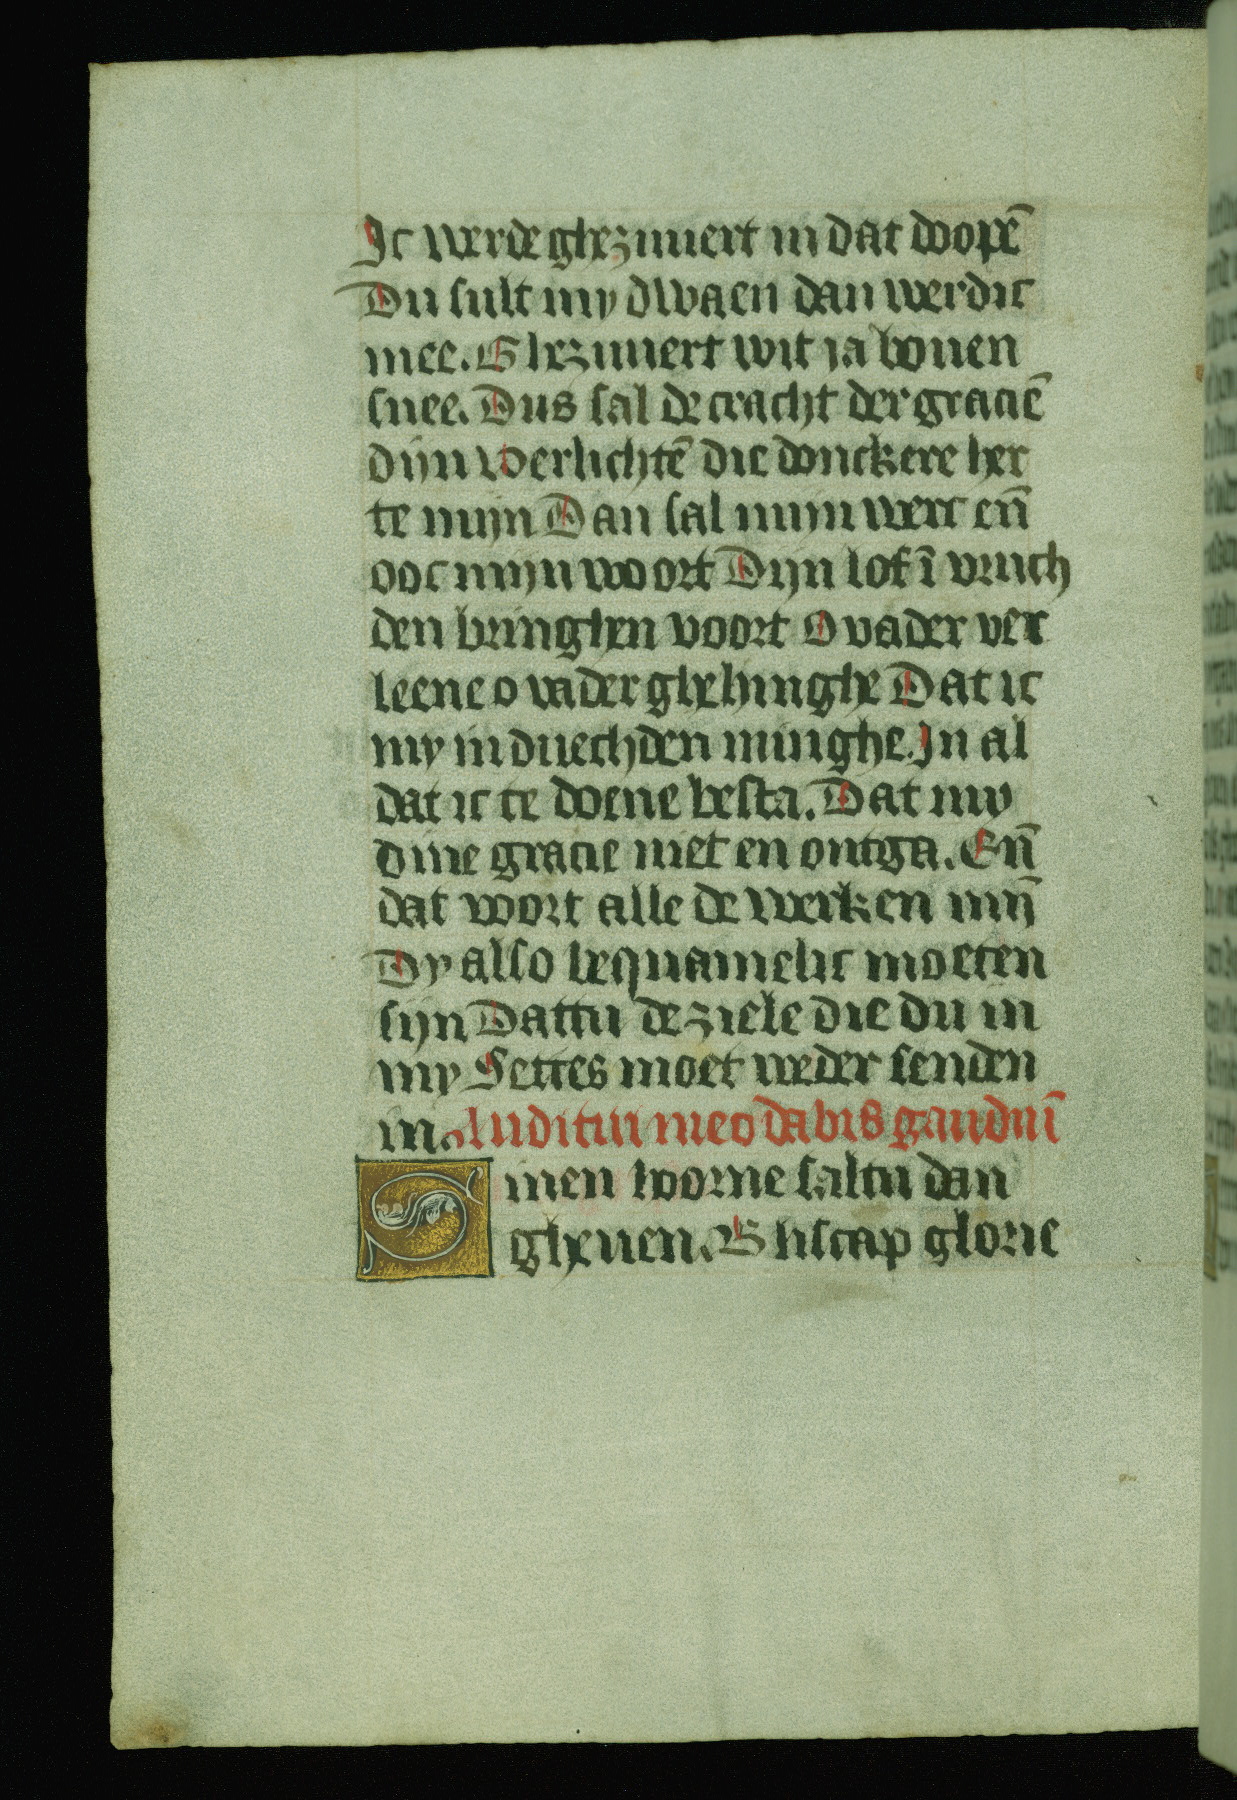 Ic werde ghezuuert in dat doopē
Du sult my dwaen dan werdic
mee. Ghezuuert wit ja bouen
snee. Dus sal de cracht der graciē
dijn Verlichtē die donckere her
te mijn Dan sal mijn werc eñ
ooc mijn woort Dijn lof ī vruch
den bringhen voort O vader ver
leene o vader ghehinghe Dat ic
my in duechden minghe. In al
dat ic te doene besta. Dat my
dine gracie niet en ontga. Eñ
dat voort alle de werken mijn̄
Dy also bequamelic moeten
sijn Dattu de ziele die du in
my Settes moet weder senden
in. Auditui meo dabis gaudiū̄
Sinen hoorne saltu dan
gheuen. Bliscap glorie